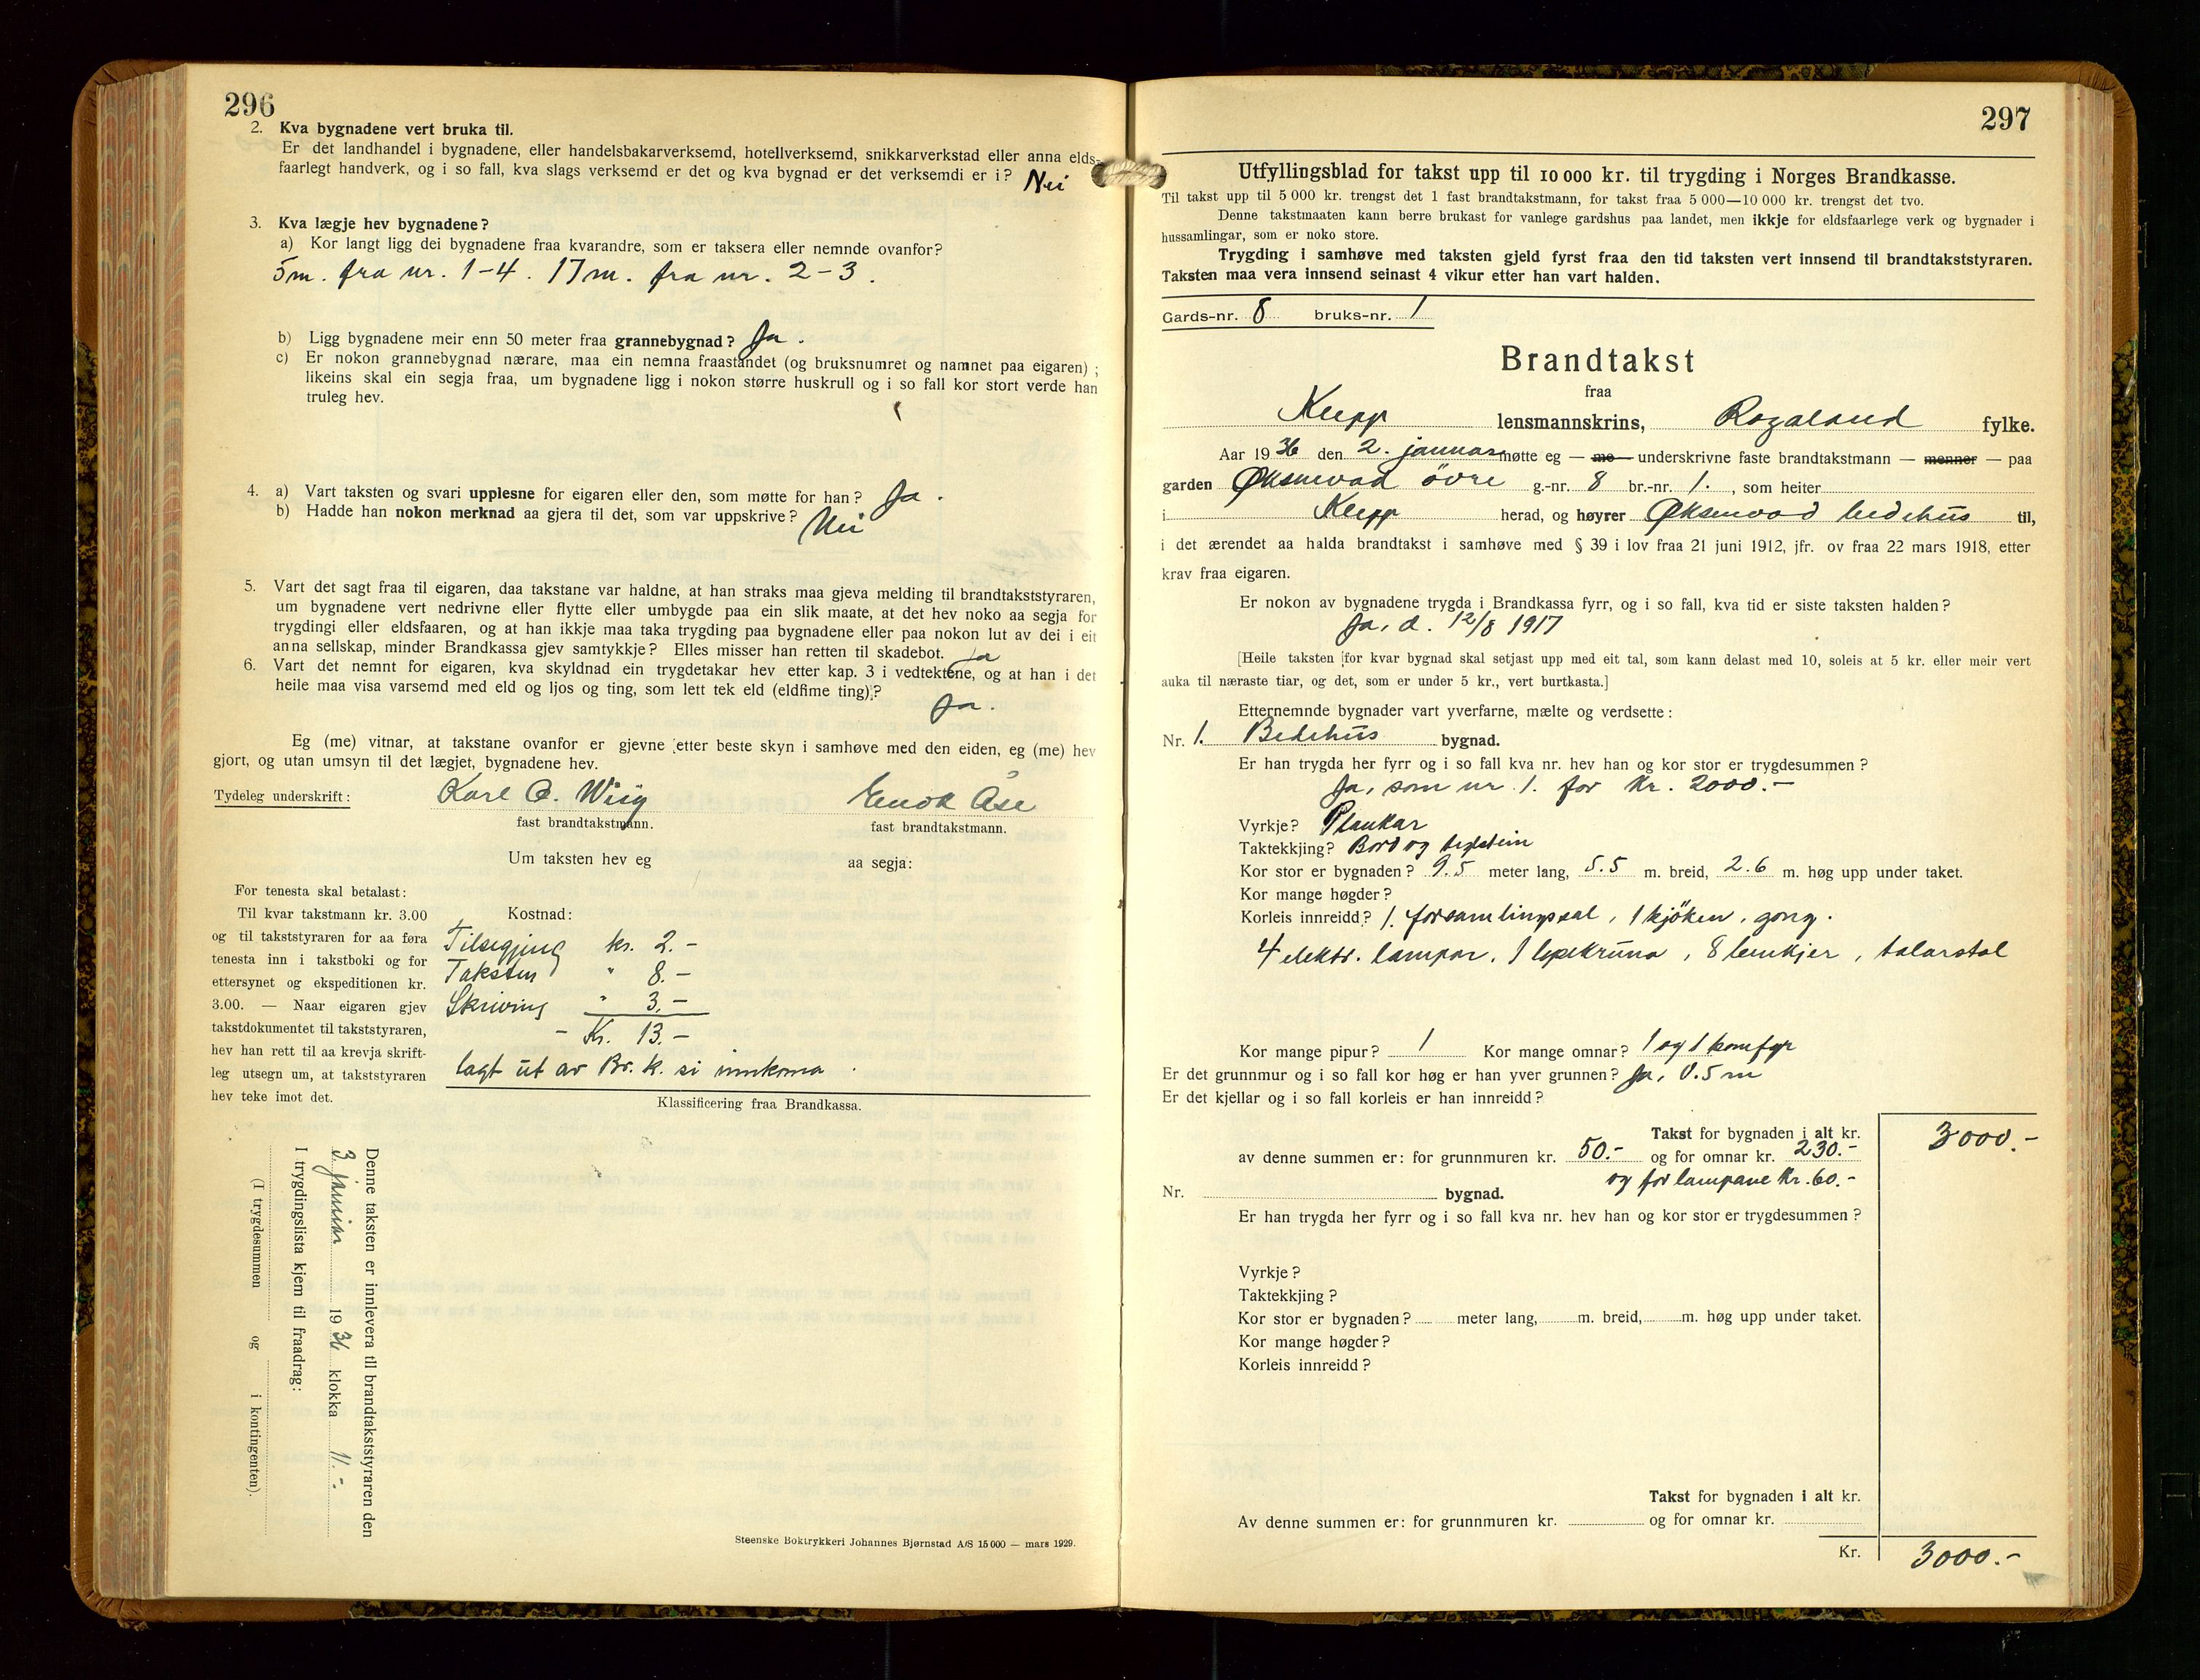 296
2. Kva bygnadene vert bruka til.
Er det landhandel i bygnadene, eller handelsbakarverksemd, hotellverksemd, snikkarverkstad eller anna elds-
faarlegt handverk, og i so fall, kva slags verksemd er det og kva bygnad er det verksemdi er i? Nei
3. Kva lægje hev bygnadene?
a) Kor langt ligg dei bygnadene fraa kvarandre, som er taksera eller nemnde ovanfor?
5m. fra nr. 1-4. 17m. fra nr. 2-3.
b) Ligg bygnadene meir enn 50 meter fraa grannebygnad? Ja.
c) Er nokon grannebygnad nærare, maa ein nemna fraastandet (og bruksnumret og namnet paa eigaren);
likeins skal ein segja fraa, um bygnadene ligg i nokon større huskrull og i so fall kor stort verde han
truleg hev.
4. a) Vart taksten og svari upplesne for eigaren eller den, som møtte for han? Ja.
b) Hadde han nokon merknad aa gjera til det, som var uppskrive? Nei
5. Vart det sagt fraa til eigaren, daa takstane var haldne, at han straks maa gjeva melding til brandtakststyraren,
um bygnadene vert nedrivne eller flytte eller umbygde paa ein slik maate, at det hev noko aa segja for
trygdingi eller eldsfaaren, og at han ikkje maa taka trygding paa bygnadene eller paa nokon lut av dei i eit
anna sellskap, minder Brandkassa gjev samtykkje? Elles misser han retten til skadebot. Ja
6. Vart det nemnt for eigaren, kva skyldnad ein trygdetakar hev etter kap. 3 i vedtektene, og at han i det
heile maa visa varsemd med eld og ljos og ting, som lett tek eld (eldfime ting)? Ja.
Eg (me) vitnar, at takstane ovanfor er gjevne etter beste skyn i samhøve med den eiden, eg (me) hev
gjort, og utan umsyn til det lægjet, bygnadene hev.
Tydeleg underskrift: Karl O. Wiig Enok Åse
fast brandtakstmann. fast brandtakstmann.
Um taksten hev eg aa segja:
For tenesta skal betalast:
Til kvar takstmann kr. 3.00
og til takststyraren for aa føra
tenesta inn i takstboki og for
ettersynet og ekspeditionen kr.
3.00. — Naar eigaren gjev
takstdokumentet til takststyraren,
hev han rett til aa krevja skrift-
leg utsegn um, at takststyraren
hev teke imot det.
Kostnad:
Tilsegjing kr. 2.-
Taksten " 8.-
Skriving " 3.-
- Kr. 13.-
lagt ut av Br. k. si innkoma.
Klassificering fraa Brandkassa.
Denne taksten er innlevera til brandtakststyraren den
3 januar 1936 klokka 11.-
I trygdingslista kjem til fraadrag:
(I trygdesummen og i kontingenten).
Steenske Boktrykkeri Johannes Bjørnstad A/S 15 000 — mars 1929.
297
Utfyllingsblad for takst upp til 10 000 kr. til trygding i Norges Brandkasse.
Til takst upp til 5 000 kr. trengst det 1 fast brandtakstmann, for takst fraa 5 000—10 000 kr. trengst det tvo.
Denne takstmaaten kann berre brukast for vanlege gardshus paa landet, men ikkje for eldsfaarlege verk og bygnader i
hussamlingar, som er noko store.
Trygding i samhøve med taksten gjeld fyrst fraa den tid taksten vert innsend til brandtakststyraren.
Taksten maa vera innsend seinast 4 vikur etter han vart halden.
Gards-nr. 8 bruks-nr. 1
Brandtakst
fraa
Klepp lensmannskrins, Rogaland fylke.
Aar 1936 den 2. januar møtte eg — me — underskrivne faste brandtakstmann — menner — paa
garden Øksnevad övre g.-nr. 8 br.-nr. 1. , som heiter
i Klepp herad, og høyrer Øksnevad bedehus til,
i det ærendet aa halda brandtakst i samhøve med § 39 i lov fraa 21 juni 1912, jfr. ov fraa 22 mars 1918, etter
krav fraa eigaren.
Er nokon av bygnadene trygda i Brandkassa fyrr, og i so fall, kva tid er siste taksten halden?
Ja, d. 12/8 1917
[Heile taksten for kvar bygnad skal setjast upp med eit tal, som kann delast med 10, soleis at 5 kr. eller meir vert
auka til næraste tiar, og det, som er under 5 kr., vert burtkasta.]
Etternemnde bygnader vart yverfarne, mælte og verdsette:
Nr. 1. Bedehus bygnad.
Er han trygda her fyrr og i so fall kva nr. hev han og kor stor er trygdesummen?
Ja, som nr. 1. for Kr. 2000.-
Vyrkje? Plankar
Taktekkjing? Bord og teglstein
Kor stor er bygnaden? 9.5 meter lang, 5.5 m. breid, 2.6 m. høg upp under taket.
Kor mange høgder?
Korleis innreidd? 1. forsamlingssal, 1 kjöken, gong.
4 elektr. lampar, 1 lysekruna, 8 benkjer, talarstol
Kor mange pipur? 1 Kor mange omnar? 1 og 1 komfyr
Er det grunnmur og i so fall kor høg er han yver grunnen? Ja, 0.5 m
Er det kjellar og i so fall korleis er han innreidd?
Takst for bygnaden i alt kr. 3000.-
av denne summen er: for grunnmuren kr. 50.- og for omnar kr. 230.-
og for lampane Kr. 60.-
Nr. bygnad.
Er han trygda her fyrr og i so fall kva nr. hev han og kor stor er trygdesummen?
Vyrkje?
Taktekkjing?
Kor stor er bygnaden? meter lang, m. breid, m. høg upp under taket.
Kor mange høgder?
Korleis innreidd?
Takst for bygnaden i alt kr.
Av denne summen er: for grunnmuren kr. og for omnar kr.
Kr. 3000.-